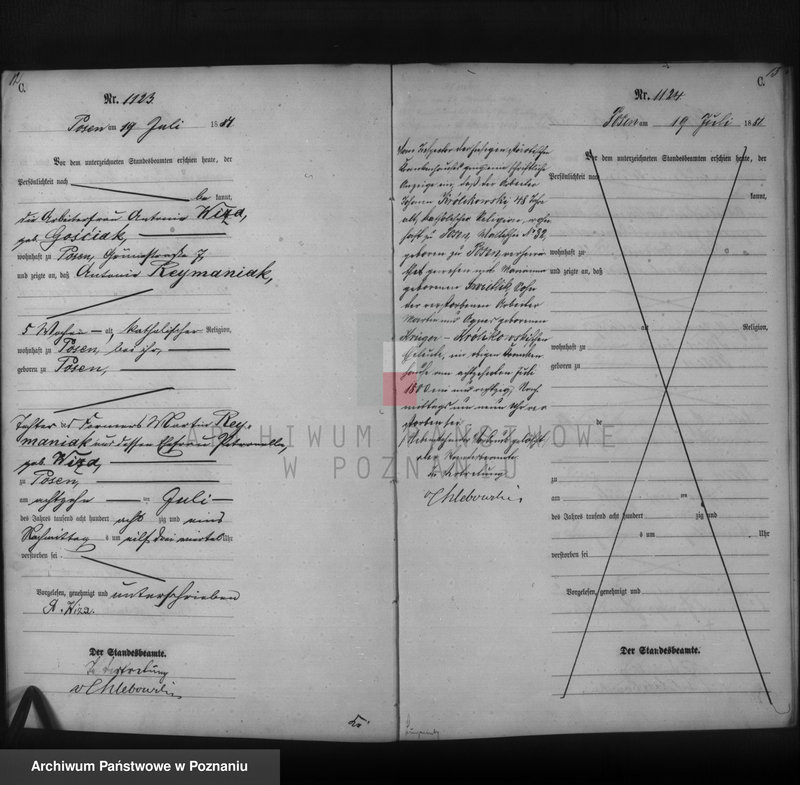 12
C.
Nr. 1123.
Posen am 19 Juli 1881
Vor dem unterzeichneten Standesbeamten erschien heute, der
Persönlichkeit nach
be kannt,
die Arbeiterfrau Antonie Wiza,
geb. Gościak,
wohnhaft zu Posen, Grünestraße 7,
und zeigte an, daß Antonie Reymaniak,
5 Wochen alt, katholischer Religion,
wohnhaft zu Posen, bei ihr,
geboren zu Posen,
Tochter des Martin Rey-
maniak und dessen Ehefrau Petronella,
geb. Wiza,
zu Posen,
am achtzehn ten Juli
des Jahres tausend acht hundert acht zig und eins
Nachmittag s um elf drei viertel Uhr
verstorben sei.
Vorgelesen, genehmigt und unterschrieben
A. Wiza.
Der Standesbeamte.
In Vertretung
13
C.
Nr. 1124
Posen am 19 Juli 1881
Vor dem unterzeichneten Standesbeamten erschien heute, der
Persönlichkeit nach
kannt,
Vom Inspector des hiesigen städtischen
Krankenhauses ging eine schriftliche
Anzeige ein, daß der Arbeiter
Johann Królokowski 48 Jahre
alt, katholischer Religion, wohn-
haft zu Posen, Wallischei N° 32,
geboren zu Posen, verhei-
rathet gewesen mit Marianna
geborenen Sohn
der verstorbenen Arbeiter
Martin und Agnes geborenen
Krüger - Królikowskischen
Eheleute, im obigen Kranken-
hause am achtzehnten Juli
Nach-
mittags um neun Uhr ver-
storben sei.
Der Standesbeamte
In Vertretung
wohnhaft zu
und zeigte an, daß
alt, Religion,
wohnhaft zu
geboren zu
de
zu
am ten
des Jahres tausend acht hundert zig und
s um Uhr
verstorben sei
Vorgelesen, genehmigt und
Der Standesbeamte.
ARCHIWUM PAŃSTWOWE
W POZNANIU
Archiwum Państwowe w Poznaniu